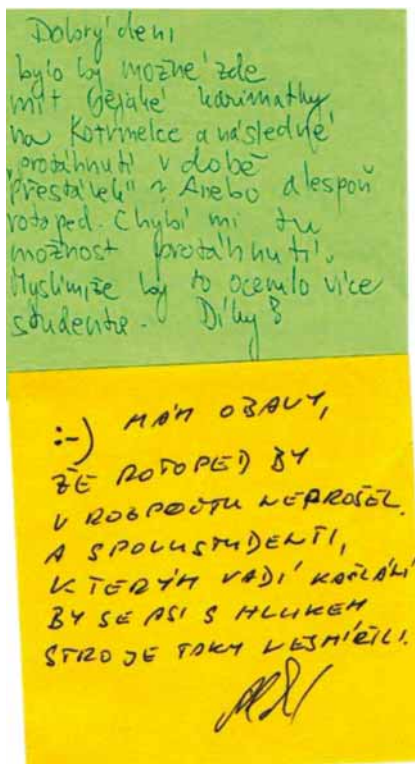 Dobrý den!
bylo by možné zde
mít nějaké karimatky
na kotrmelce a následné
protáhnutí v době
"přestávek"? Anebo alespoň
rotoped. Chybí mi tu
možnost protáhnutí.
Myslím, že by to ocenilo více
studentů. Díky!
:-) MÁM OBAVY,
ŽE ROTOPED BY
V ROZPOČTU NEPROŠEL.
A SPOLUSTUDENTI,
KTERÝM VADÍ KAŠLÁNÍ
BY SE ASI S HLUKEM
STROJE TAKY NESMÍŘILI.